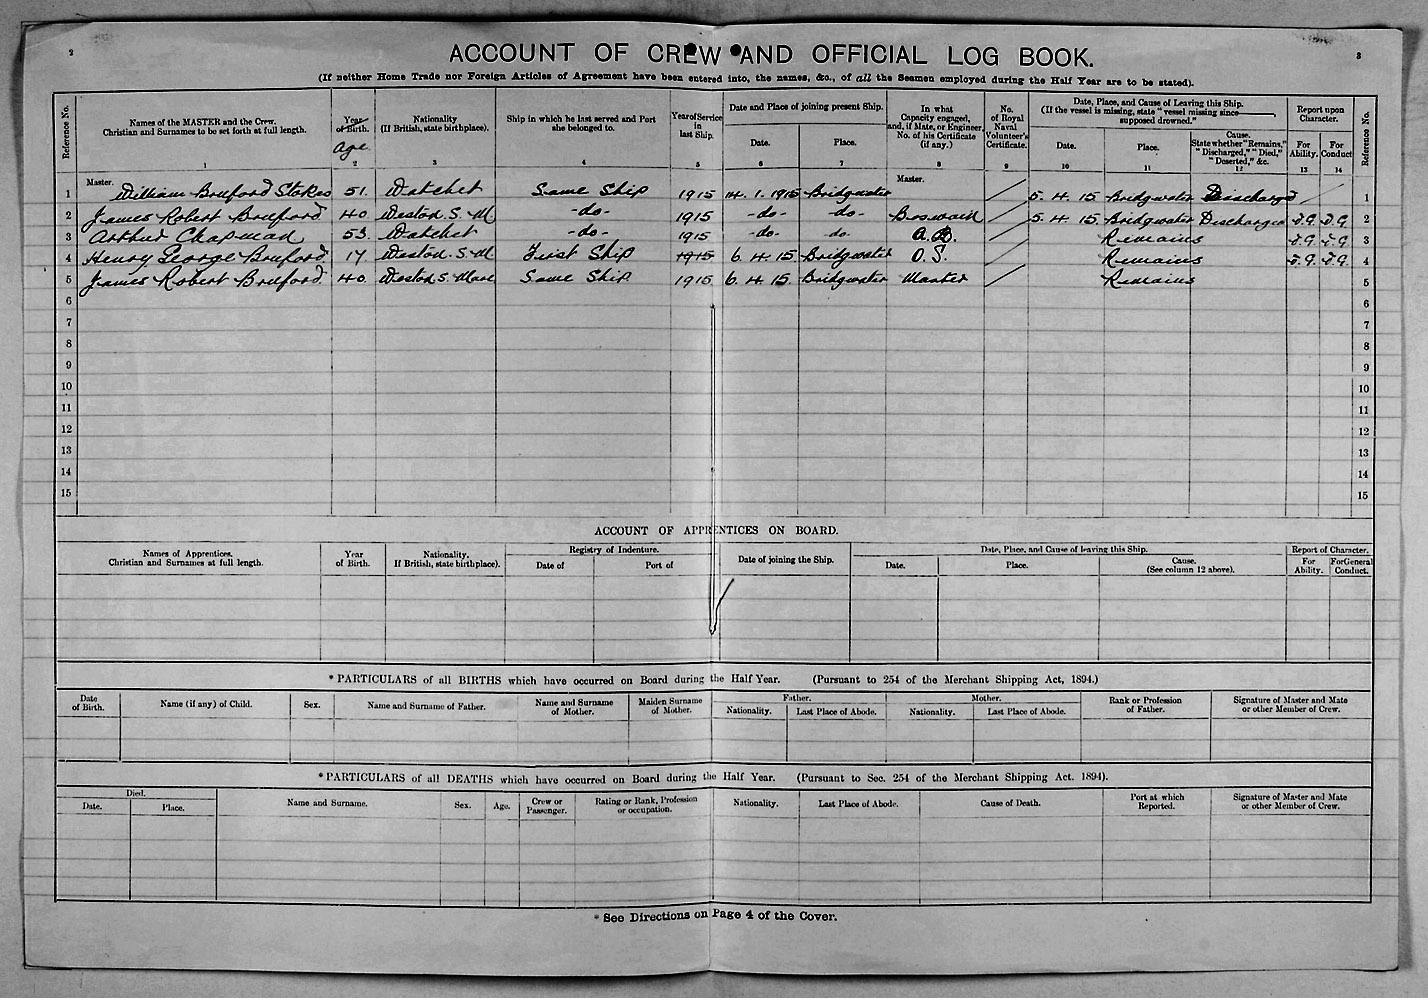 2
3
ACCOUNT OF CREW AND OFFICIAL LOG BOOK.
(If neither Home Trade nor Foreign Articles of Agreement have been entered into, the names, &c., of all the Seamen employed during the Half Year are to be stated).
Reference No.
Names of the MASTER and the Crew. Christian and Surnames to be set forth at full length.
Year of Birth. Age
Nationality (If British, state birthplace).
Ship in which he last served and Port she belonged to.
Year of Service in last Ship.
Date and Place of joining present Ship.
Date.
Place.
In what Capacity engaged, and, if Mate, or Engineer, No. of his Certificate (if any.)
No. of Royal Naval Volunteer's Certificate.
Date, Place, and Cause of Leaving this Ship. (If the vessel is missing, state "vessel missing since ———, supposed drowned."
Date.
Place.
Cause. State whether "Remains," "Discharged," "Died," "Deserted," &c.
Report upon Character.
For Ability.
For Conduct
Reference No.
1 2 3 4 5 6 7 8 9 10 11 12 13 14
Master.
Master.
1 William Bruford Stokes 51. Watchet Same Ship 1915 14. 1. 1915 Bridgwater 5. 4. 15 Bridgwater Discharged 1
2 James Robert Bruford 40 Weston. S. M -do- 1915 -do- -do- Boswain 5. 4. 15 Bridgwater Discharged V.G. V.G. 2
3 Arthur Chapman 53. Watchet -do- 1915 -do- -do- A.B. Remains V.G. V.G. 3
4 Henry George Bruford 17 Weston. S. M First Ship 1915 6. 4. 15 Bridgwater O.S. Remains V.G. V.G. 4
5 James Robert Bruford 40. Weston S. Mare Same Ship 1915 6. 4. 15. Bridgwater Master Remains 5
6 6
7 7
8 8
9 9
10 10
11 11
12 12
13 13
14 14
15 15
ACCOUNT OF APPRENTICES ON BOARD.
Names of Apprentices. Christian and Surnames at full length.
Year of Birth.
Nationality. If British, state birthplace).
Registry of Indenture.
Date of
Port of
Date of joining the Ship.
Date, Place, and Cause of leaving this Ship.
Date.
Place.
Cause. (See column 12 above).
Report of Character.
For Ability.
For General Conduct.
*PARTICULARS of all BIRTHS which have occurred on Board during the Half Year. (Pursuant to 254 of the Merchant Shipping Act, 1894.)
Date of Birth.
Name (if any) of Child.
Sex.
Name and Surname of Father.
Name and Surname of Mother.
Maiden Surname of Mother.
Father.
Nationality.
Last Place of Abode.
Mother.
Nationality.
Last Place of Abode.
Rank or Profession of Father.
Signature of Master and Mate or other Member of Crew.
*PARTICULARS of all DEATHS which have occurred on Board during the Half Year. (Pursuant to Sec. 254 of the Merchant Shipping Act. 1894).
Died.
Date.
Place.
Name and Surname.
Sex.
Age.
Crew or Passenger.
Rating or Rank, Profession or occupation.
Nationality.
Last Place of Abode.
Cause of Death.
Port at which Reported.
Signature of Master and Mate or other Member of Crew.
* See Directions on Page 4 of the Cover.